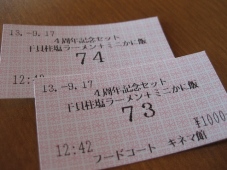 13.-9.17
4周年記念セット
干貝柱塩ラーメン+ミニかに飯
74
12:4
13.-9.17
4周年記念セット
干貝柱塩ラーメン+ミニかに飯
73
¥1000
12:42
フードコート キネマ館